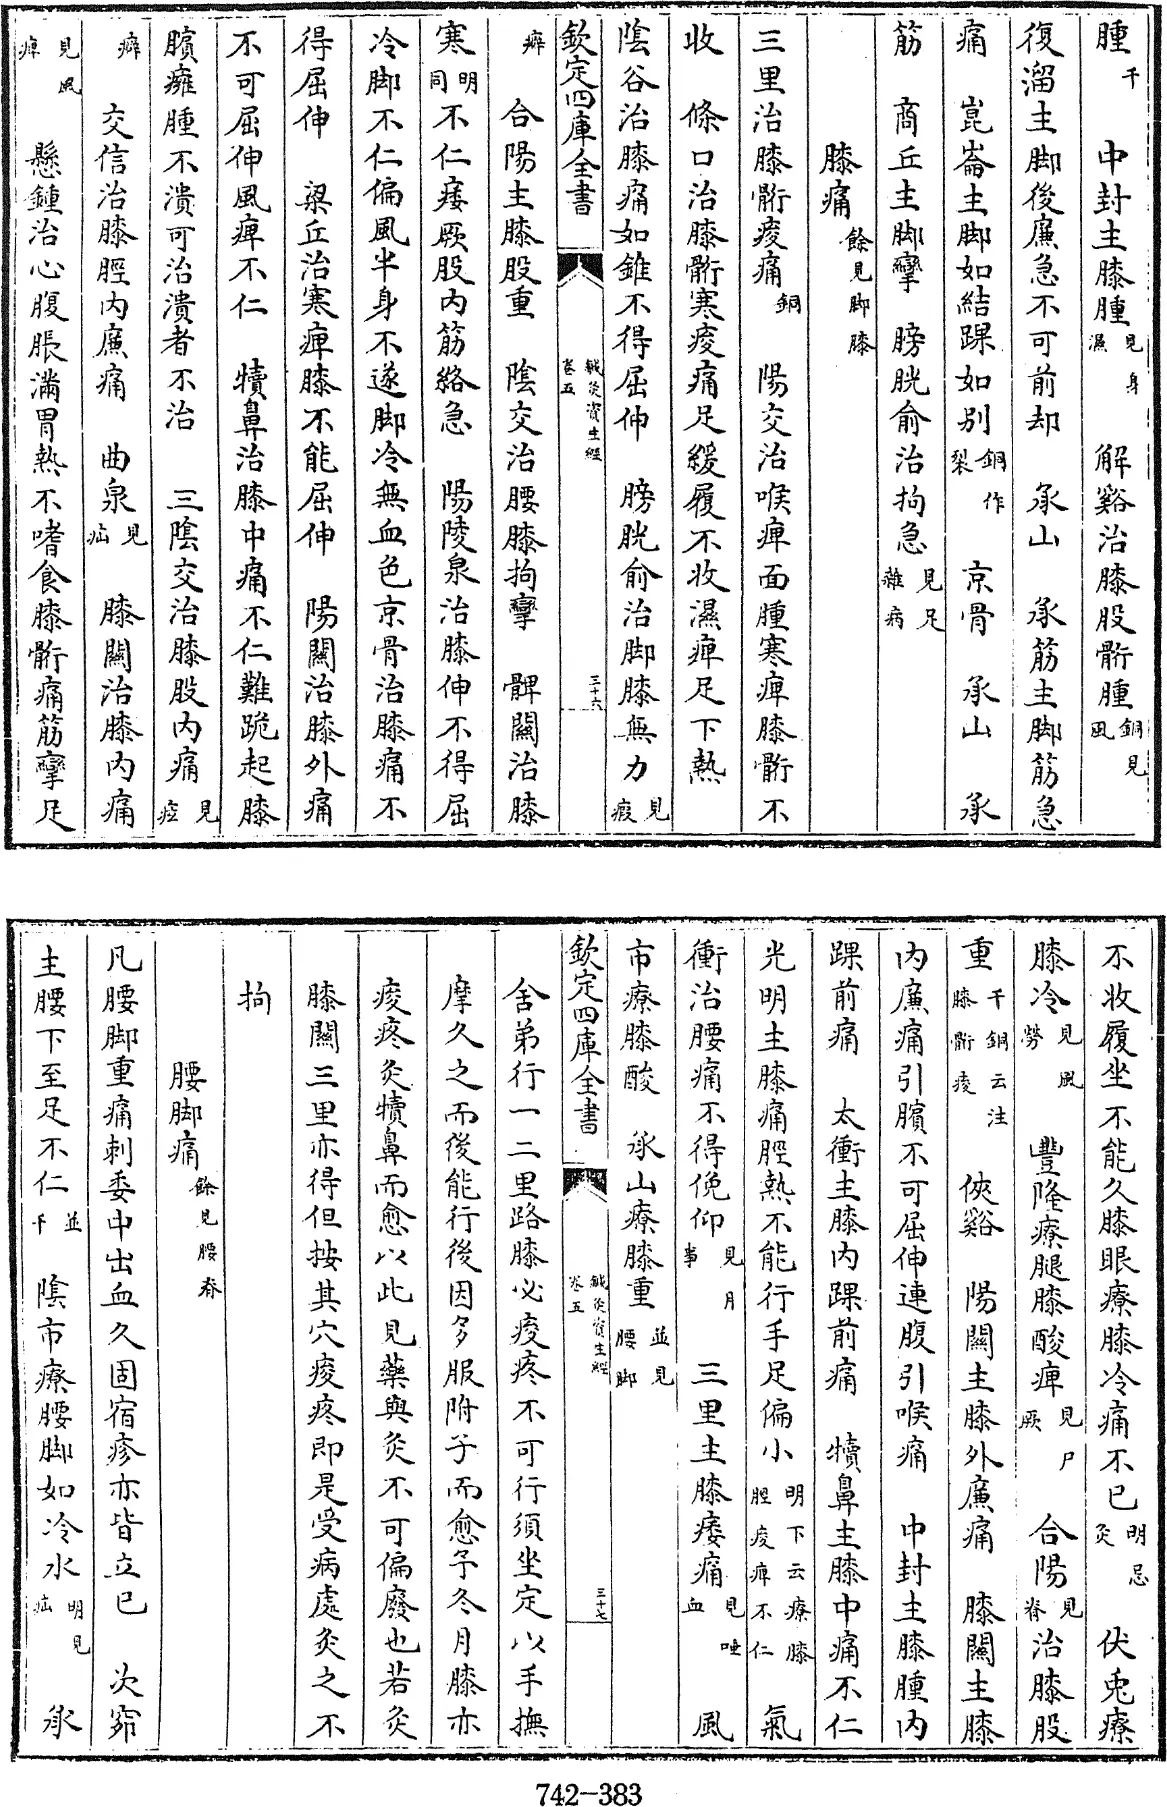 腫千　中封主膝腫見身濕　解谿治膝股䯒腫銅見風
復溜主脚後廉急不可前却　承山　承筋主脚筋急
痛　崑崙主脚如結踝如别銅作裂　京骨　承山　承
筋　商丘主脚攣　膀胱俞治拘急見足雜病
膝痛餘見脚膝
三里治膝䯒痠痛銅　陽交治喉痺面腫寒痺膝䯒不
收　條口治膝䯒寒痠痛足緩履不收濕痺足下熱
陰谷治膝痛如錐不得屈伸　膀胱俞治脚膝無力見瘕
欽定四庫全書　鍼灸資生經卷五　三十六
癖　合陽主膝股重　陰交治腰膝拘攣　髀關治膝
寒明同不仁痿厥股内筋絡急　陽陵泉治膝伸不得屈
冷脚不仁偏風半身不遂脚冷無血色京骨治膝痛不
得屈伸　梁丘治寒痺膝不能屈伸　陽關治膝外痛
不可屈伸風痺不仁　犢鼻治膝中痛不仁難跪起膝
臏癰腫不潰可治潰者不治　三陰交治膝股内痛見痃
癖　交信治膝脛内廉痛　曲泉見疝　膝關治膝内痛
見風痺　懸鍾治心腹脹滿胃熱不嗜食膝䯒痛筋攣足
不收履坐不能久膝眼療膝冷痛不已明忌灸　伏兎療
膝冷見風勞　豐隆療腿膝酸痺見尸厥　合陽見脊治膝股
重千銅云注膝䯒痠　俠谿　陽關主膝外廉痛　膝關主膝
内廉痛引臏不可屈伸連腹引喉痛　中封主膝腫内
踝前痛　太衝主膝内踝前痛　犢鼻主膝中痛不仁
光明主膝痛脛熱不能行手足偏小明下云療膝脛痠痺不仁　氣
衝治腰痛不得俛仰見月事　三里主膝痿痛見唾血　風
市療膝酸　承山療膝重並見腰脚
欽定四庫全書　鍼灸資生經卷五　三十七
舍弟行一二里路膝必痠疼不可行須坐定以手撫
摩久之而後能行後因多服附子而愈予冬月膝亦
痠疼灸犢鼻而愈以此見藥與灸不可偏廢也若灸
膝關三里亦得但按其穴痠疼即是受病處灸之不
拘
腰脚痛餘見腰脊
凡腰脚重痛刺委中出血久固宿疹亦皆立已　次窌
主腰下至足不仁並千　陰市療腰脚如冷水明見疝　承
742-383